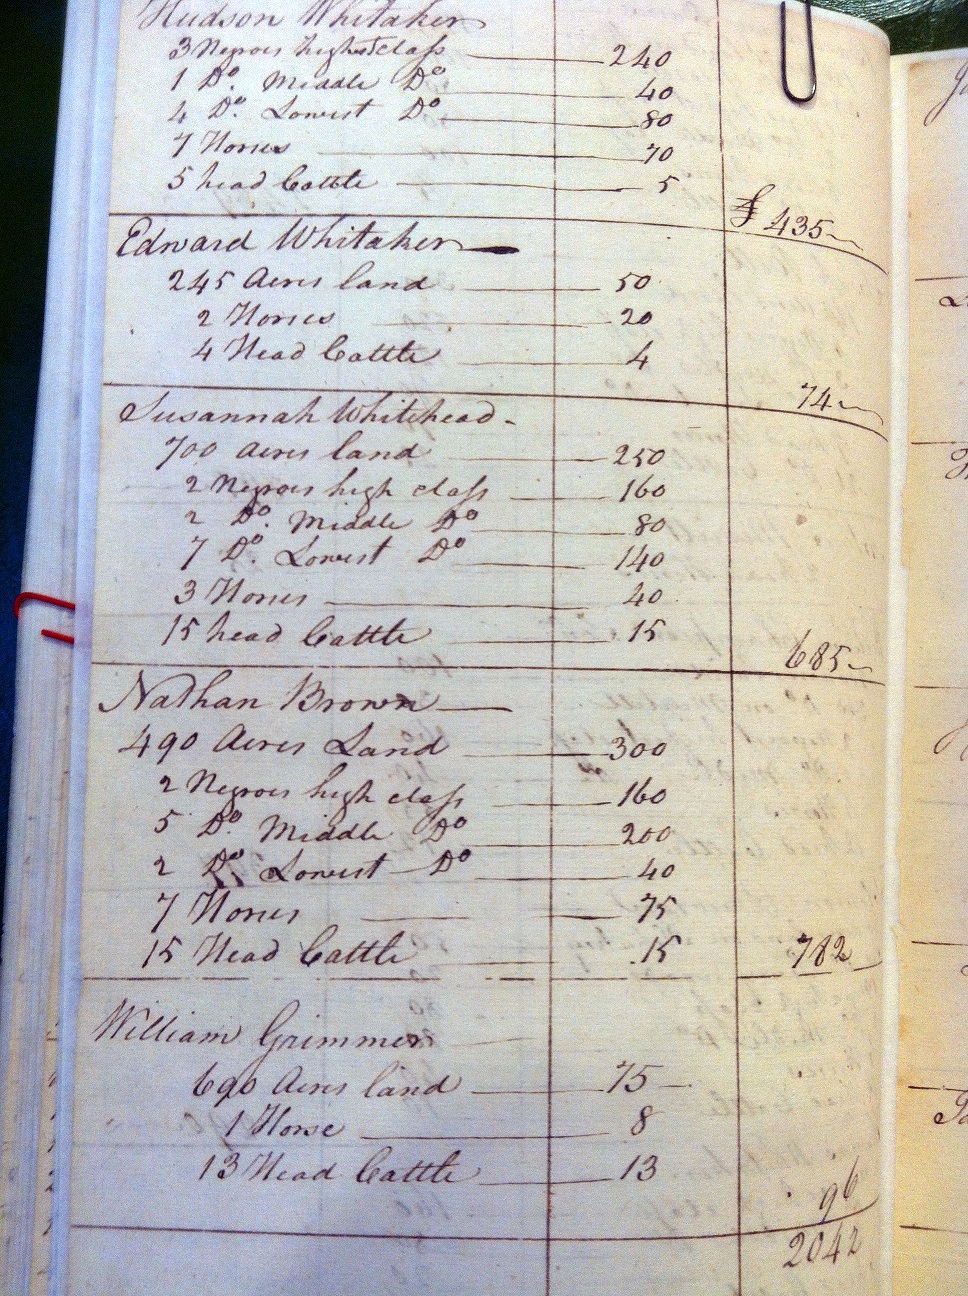 Hudson Whitaker
3 Negroes highest class 240
1 Do. Middle Do 40
4 Do. Lowest Do 80
7 Horses 70
5 head Cattle 5
£ 435
Edward Whitaker
245 Acres land 50
2 Horses 20
4 Head Cattle 4
74
Susannah Whitehead
700 Acres land 250
2 Negroes high class 160
2 Do. Middle Do 80
7 Do. Lowest Do 140
3 Horses 40
15 head Cattle 15
685
Nathan Brown
490 Acres Land 300
2 Negroes high class 160
5 Do. Middle Do 200
2 Do Lowest Do 40
7 Horses 75
15 Head Cattle 15 782
William Grimmer
690 Acres land 75
1 Horse 8
13 Head Cattle 13
96
2042